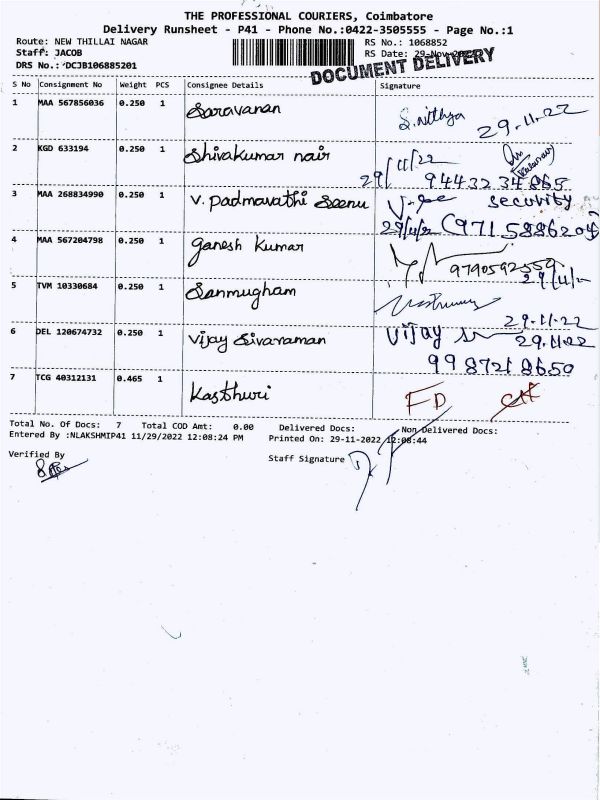 THE PROFESSIONAL COURIERS, Coimbatore
Delivery Runsheet - P41 - Phone No.:0422-3505555 - Page No.:1
Route: NEW THILLAI NAGAR RS No.: 1068852
Staff: JACOB RS Date: 29-Nov-2022
DRS No.: DCJB106885201 DOCUMENT DELIVERY
S No Consignment No Weight PCS Consignee Details Signature
1 MAA 567856036 0.250 1 Saravanan S.nithya 29.11.22
2 KGD 633194 0.250 1 Shivakumar nair 29/11/22 9443234865
3 MAA 268834990 0.250 1 V. Padmavathi Seenu security 29/11/22
4 MAA 567204798 0.250 1 ganesh kumar
5 TVM 10330684 0.250 1 Sanmugham 29.11.22
6 DEL 120674732 0.250 1 Vijay Sivaraman Vijay 29.11.22
9987218650
7 TCG 40312131 0.465 1 Kasthuri FD
Total No. Of Docs: 7 Total COD Amt: 0.00 Delivered Docs: Non Delivered Docs:
Entered By :NLAKSHMIP41 11/29/2022 12:08:24 PM Printed On: 29-11-2022 12:08:44
Verified By Staff Signature